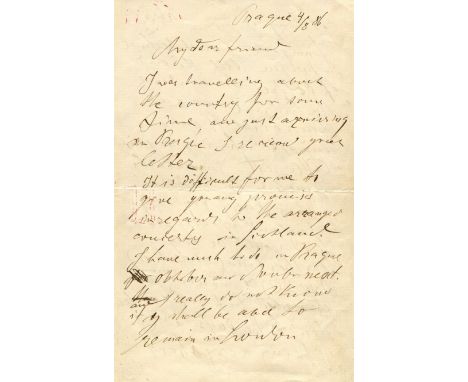 Prague 4/8 86
My dear friend
I was travelling about
the country for some
time and just arriving
in Prague I received your
letter
It is difficult for me to
give you any promiss
regards to the arranged
concerts in Scotland
I have much to do in Prague
Oktober and next.
I really do not know
if y shall be abel to
remain in London